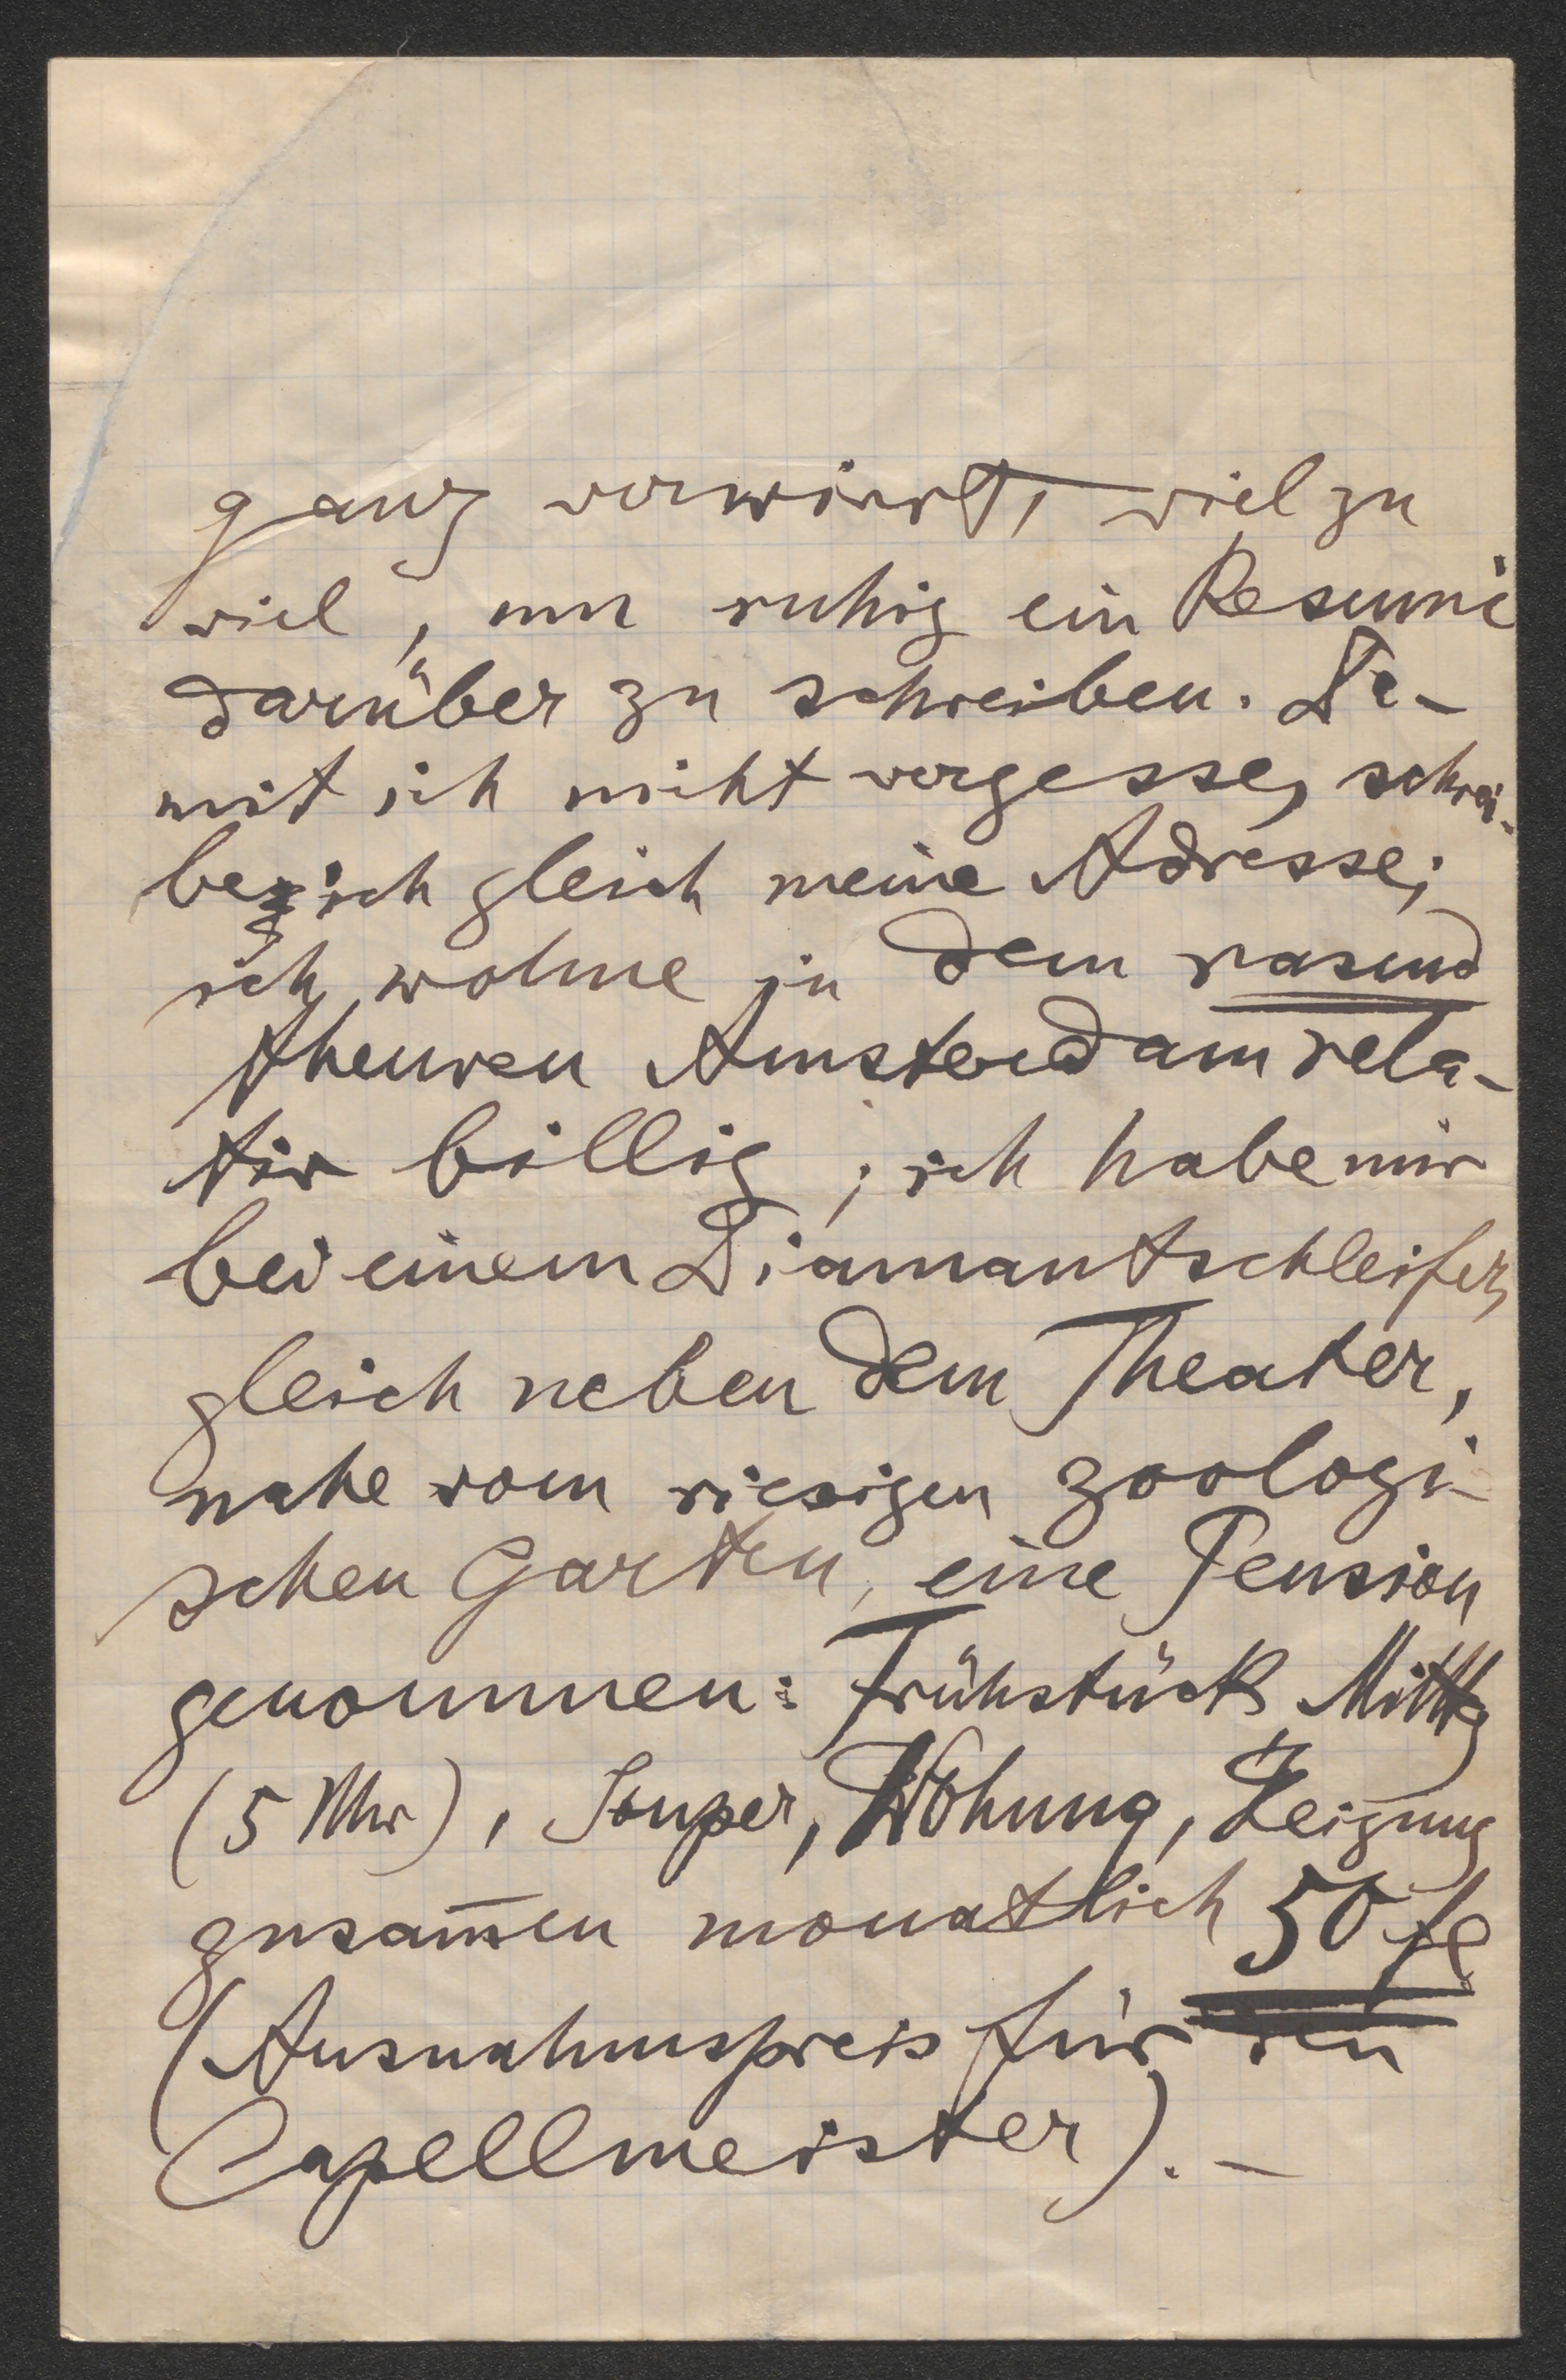 ganz verwirrt, viel zu
viel, um ruhig ein Resumé
darüber zu schreiben. Da-
mit ich nicht vergesse, schrei-
be ich gleich meine Adresse;
ich wohne in dem rasend
theuren Amsterdam rela-
tiv billig; ich habe mir
bei einem Diamantschleifer,
gleich neben dem Theater,
nahe vom riesigen zoologi-
schen Garten, eine Pension
genommen: Frühstück, Mittag
(5 Uhr), Souper, Wohnung, Heizung
zusam̅en monatlich 50 fl
(Ausnahmspreis für den
Capellmeister). –